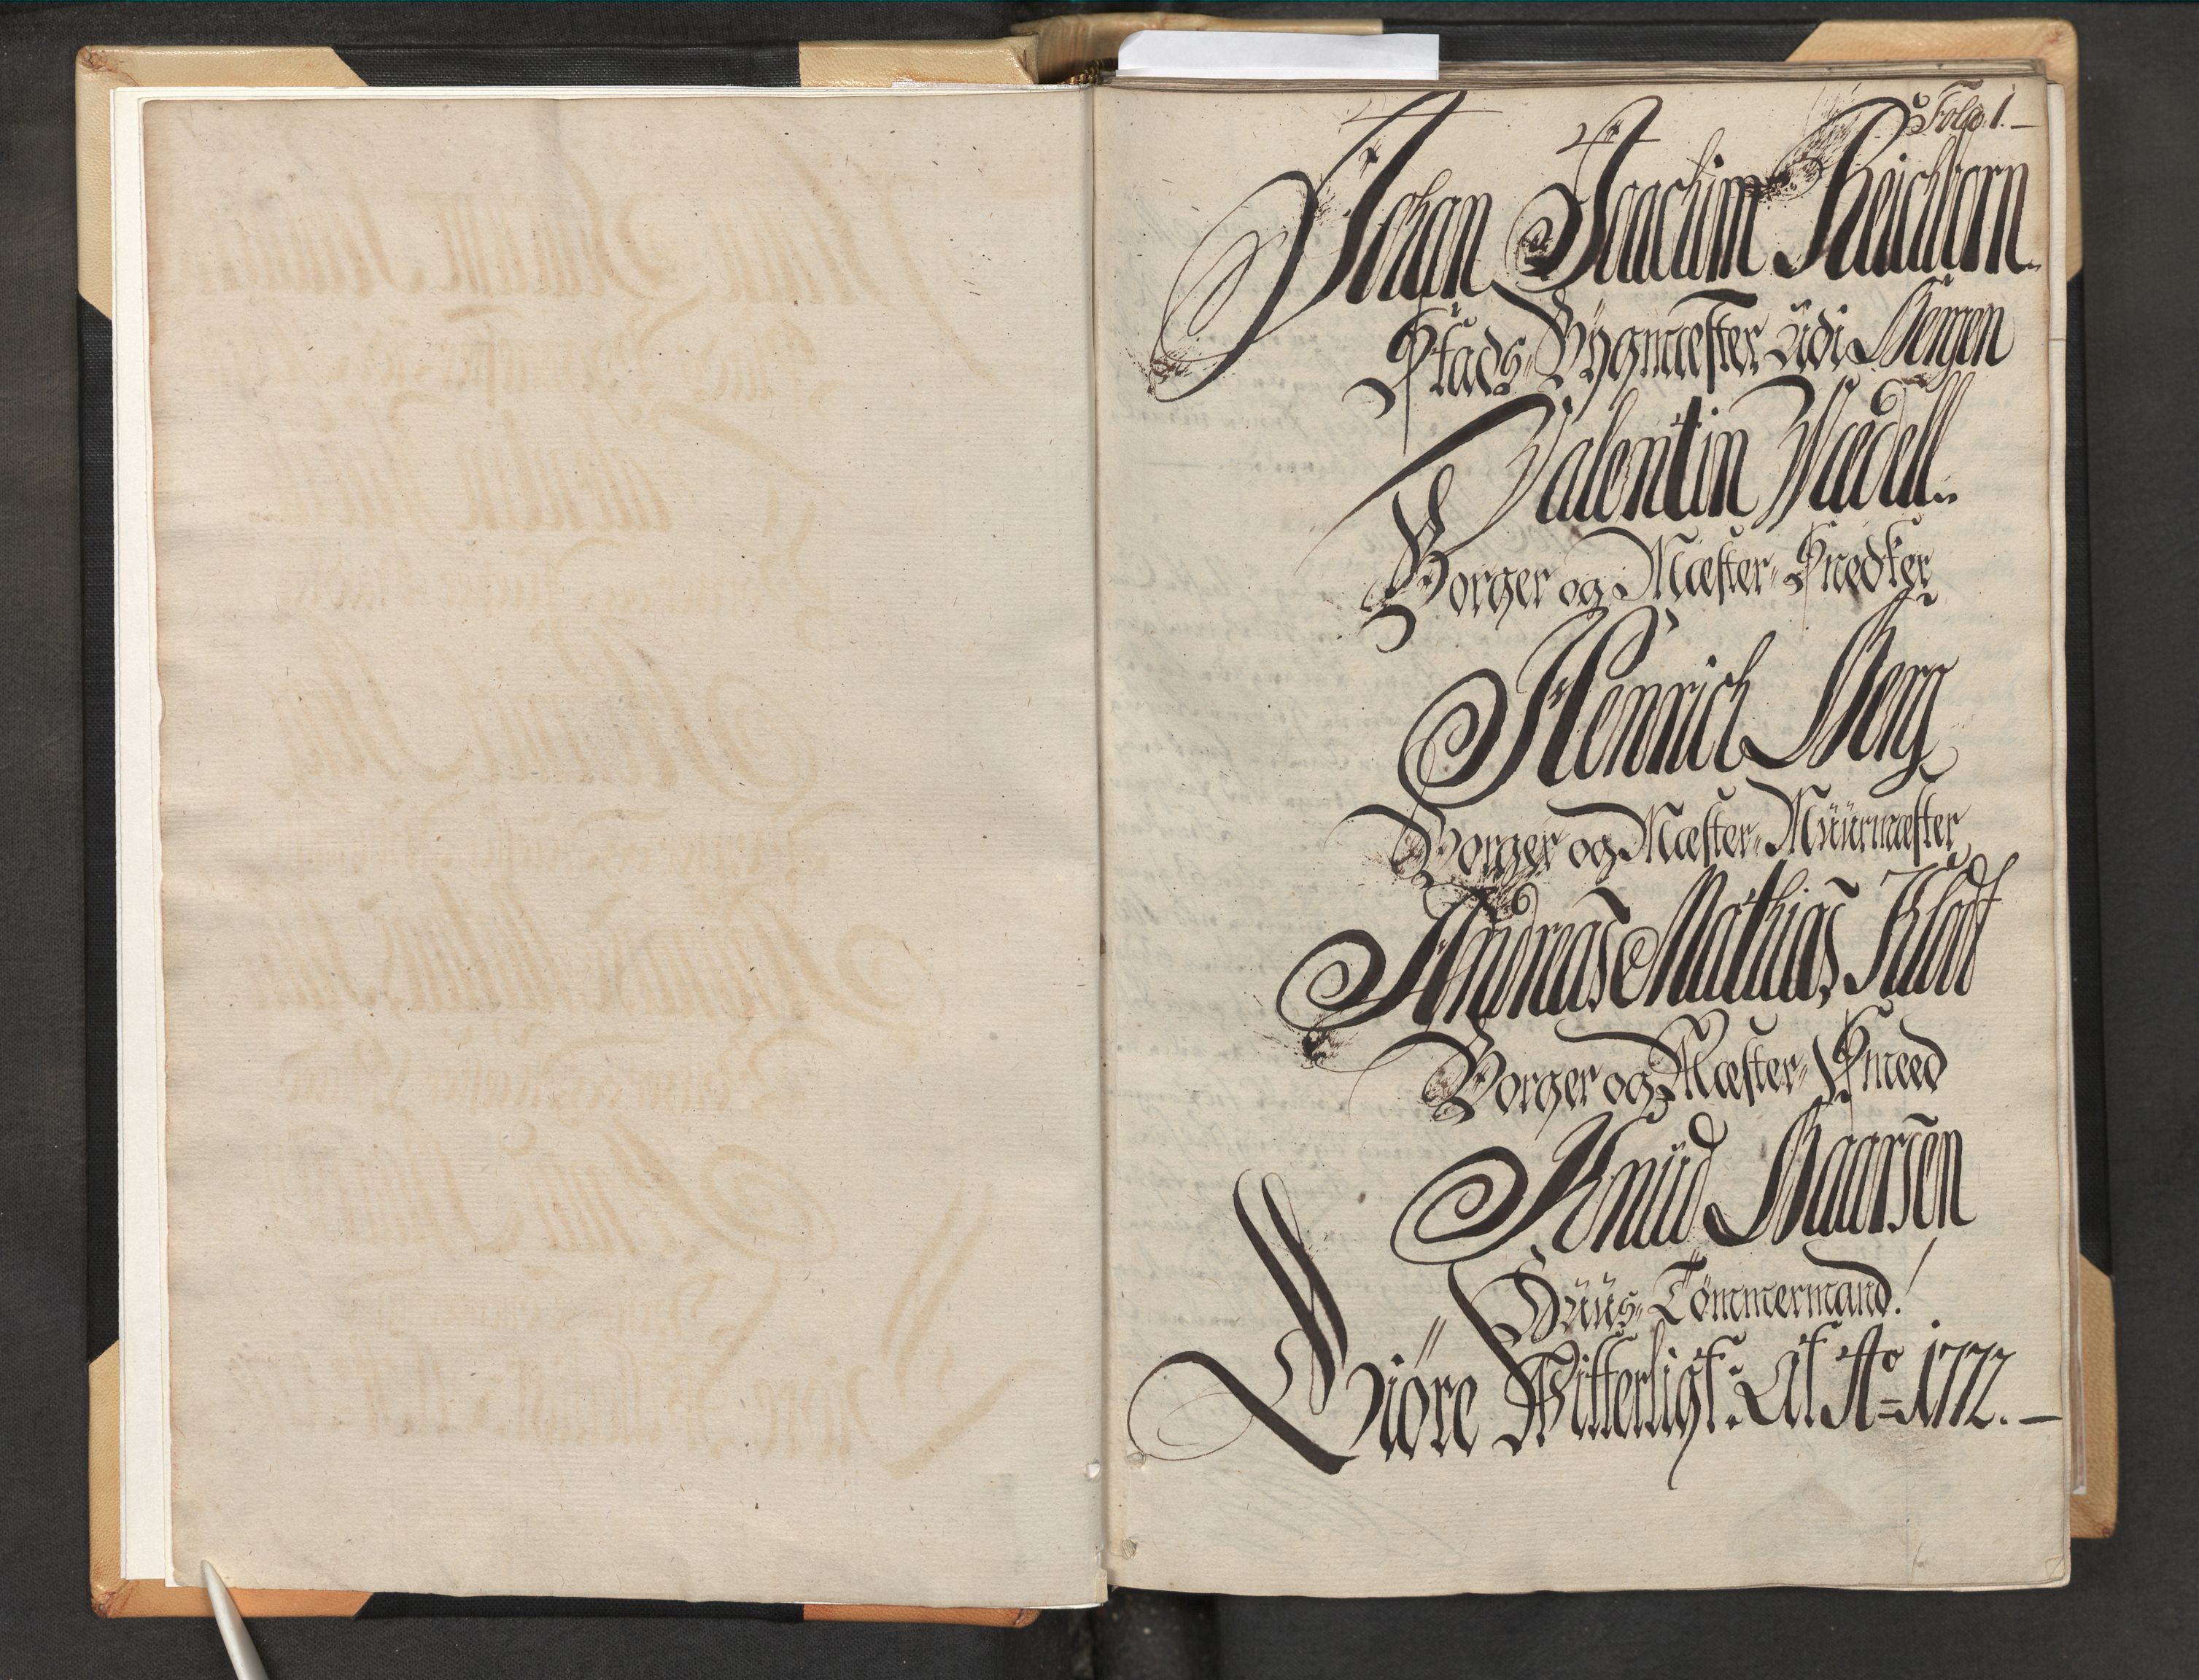 Folio 1.
Johan Joachim Reichborn
Stads-Bygmæster udi Bergen
Valentin Wedell.
Borger og Mæster-Snedker
Henrich Berg
Borger og Mæster-Müürmæster
Andreas Mathias Klodt
Borger og Mæster-Smeed
Knüd Baarsen
Hüüs-Tömmermand!
Giöre Witterligt: At Ao 1772.